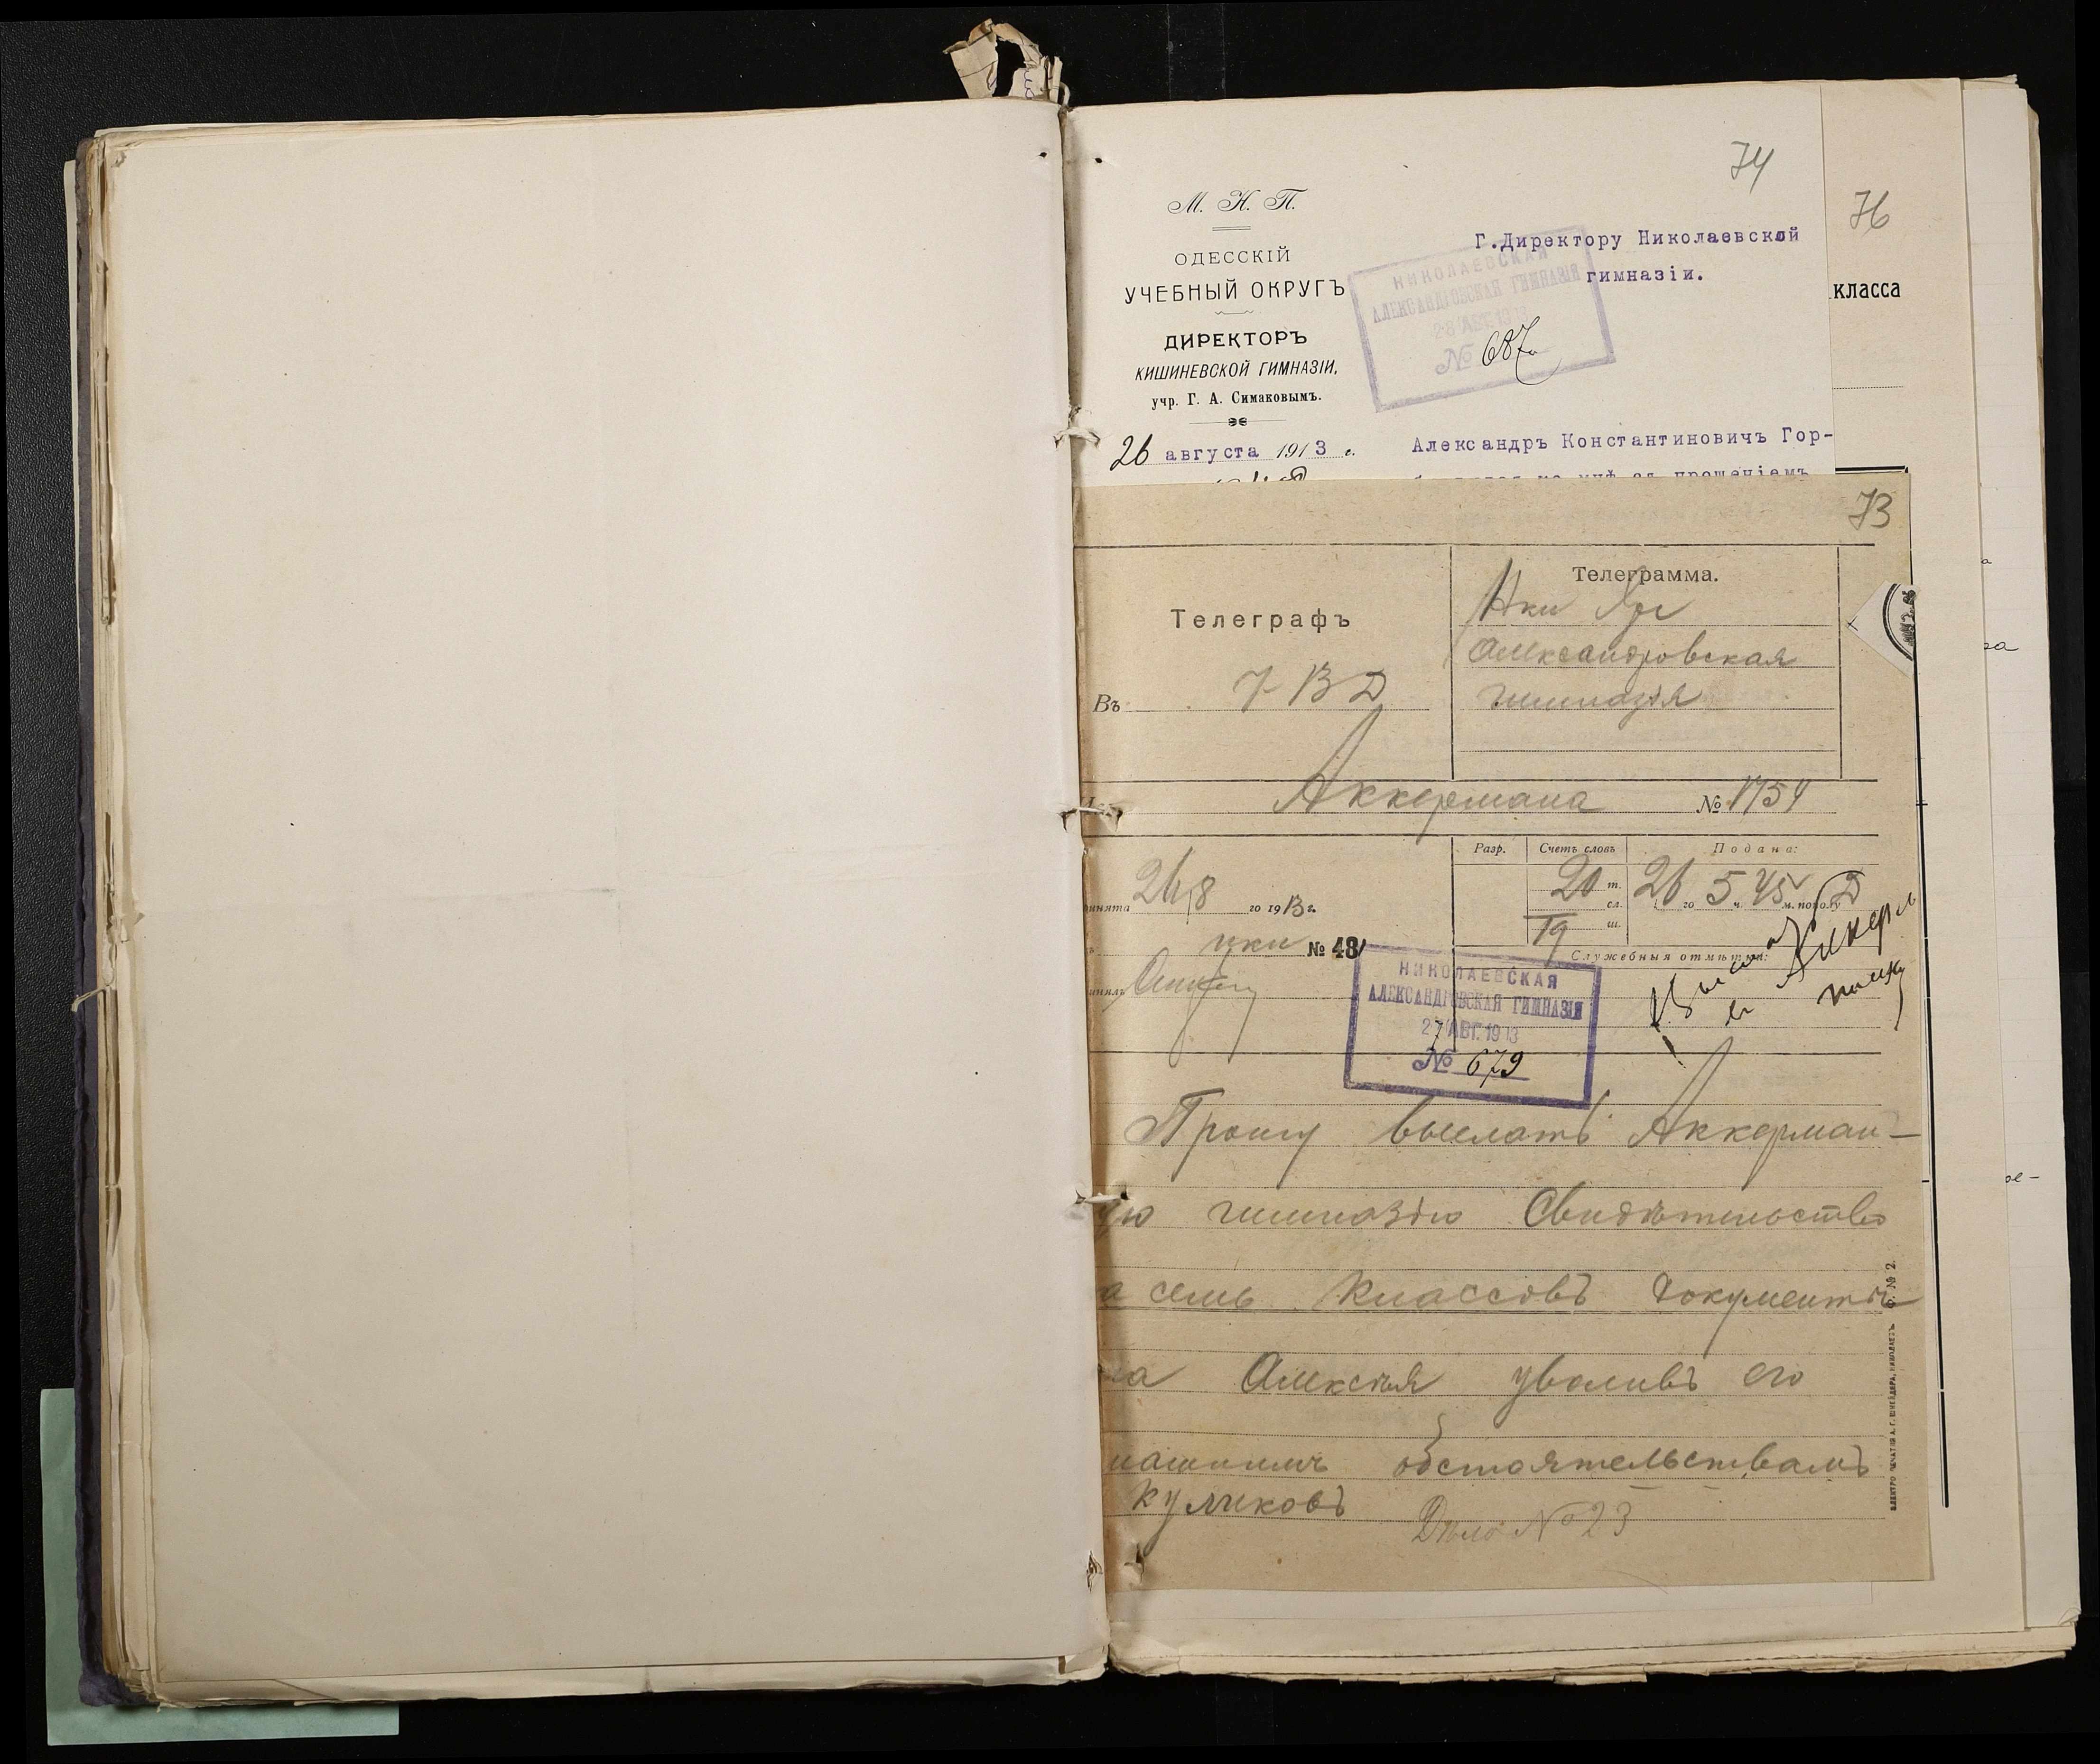 74
М. Н. П.
ОДЕССКІЙ
УЧЕБНЫЙ ОКРУГЪ
ДИРЕКТОРЪ
КИШИНЕВСКОЙ ГИМНАЗІИ,
учр. Г. А. Симаковымъ.
26 августа 1913 г.
Г.Директору Николаевской
гимназіи.
НИКОЛАЕВСКАЯ
АЛЕКСАНДРОВСКАЯ ГИМНАЗІЯ
28 АВГ 1913
№ 687
Александръ Константиновичъ Гор-
76
класса
73
Телеграфъ
Въ
Телеграмма.
Нки
Александровская
гимназія
Аккермана № 1754
Разр. Счетъ словъ Подана:
26/8 го 1913 г.
20 т. сл.
19 ш.
26 го 5 ч. 45 м. по полу Д
нки № 48
Служебныя отмѣтки:
НИКОЛАЕВСКАЯ
АЛЕКСАНДРОВСКАЯ ГИМНАЗІЯ
27 АВГ. 1913
№ 679
Прошу выслать Аккерман-
ую гимназію Свидѣтельство
а семь классовъ документы
на Алексѣя уволивъ его
машнимъ обстоятельствамъ
Куликовъ
Дѣло № 23
ЭЛЕКТРО-ПЕЧАТНЯ А. Г. ШНЕЙДЕРА, НИКОЛАЕВЪ. Ф. № 2.